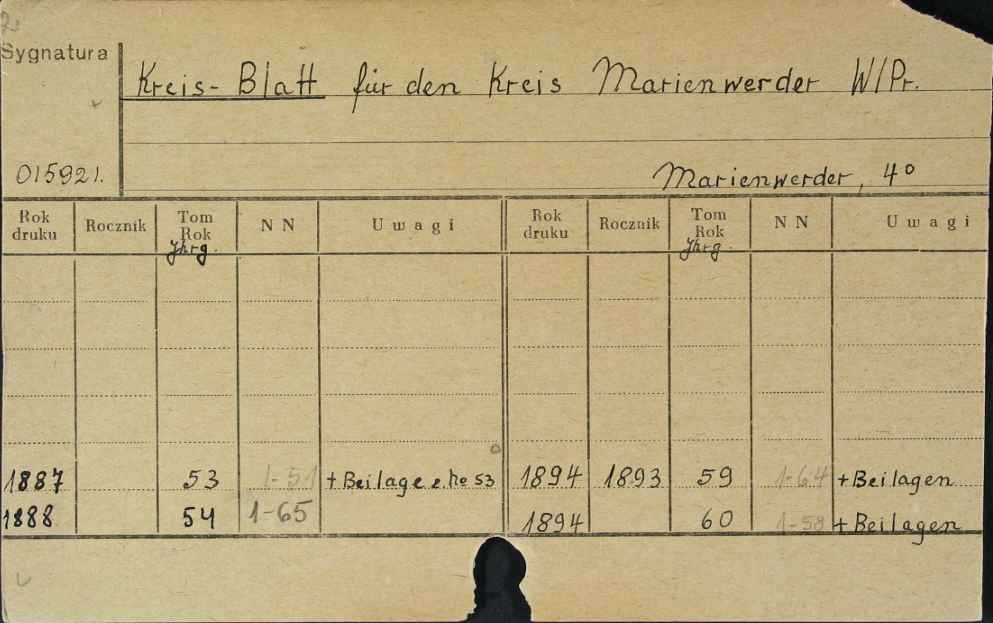 Sygnatura
Kreis-Blatt für den Kreis Marienwerder W/Pr.
015921.
Marienwerder, 4°
Rok druku Rocznik Tom Rok Jhrg. NN Uwagi Rok druku Rocznik Tom Rok Jhrg. NN Uwagi
1887 53 1-51 + Beilage z. No 53 1894 1893 59 1-64 + Beilagen
1888 54 1-65 1894 60 1-58 + Beilagen